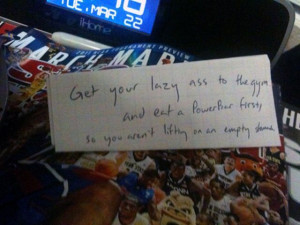 TUE, MAR 22
iHome
TOURNAMENT PREVIEW
MARCH MAD
Get your lazy ass to the gym
and eat a PowerBar first,
so you aren't lifting on an empty